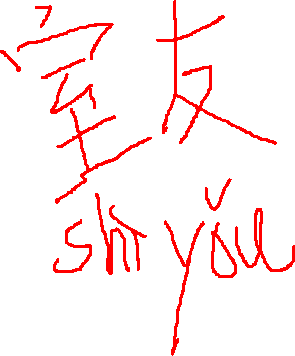 室友
shì yǒu